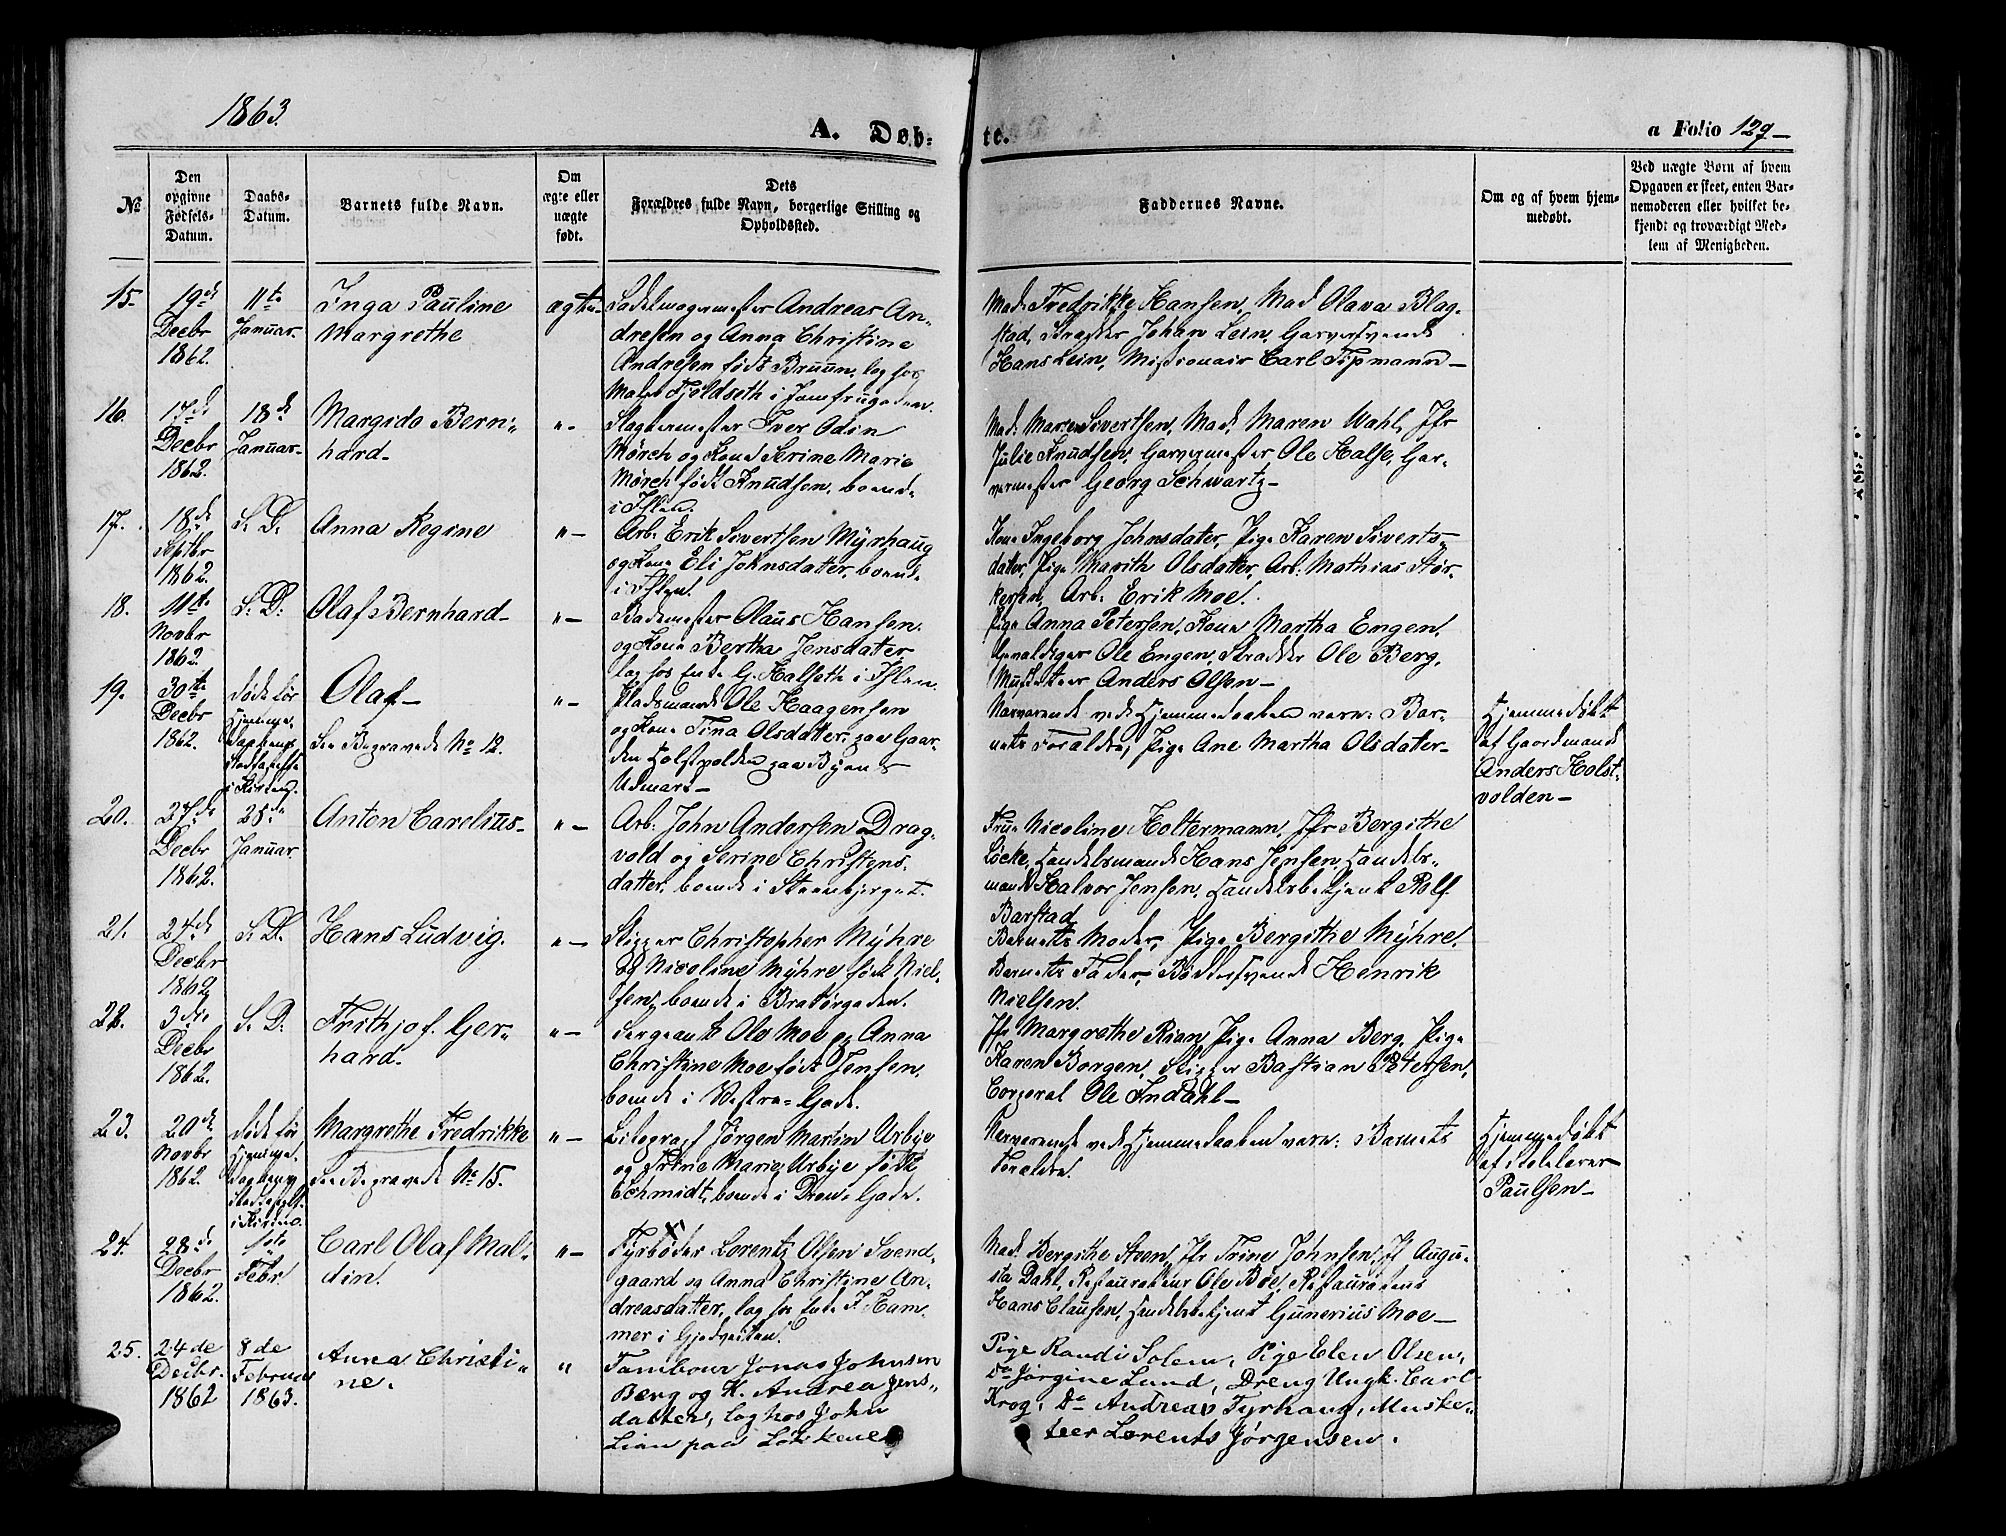 1863.
A. Døb-
te.
a Folio 129-
No.
Den
opgivne
Fødsels-
Datum.
Daabs-
Datum.
Barnets fulde Navn.
Om
ægte eller
uægte
født.
Dets
Forældres fulde Navn, borgerlige Stilling og
Opholdssted.
Faddernes Navne.
Om og af hvem hjem-
medøbt.
Ved uægte Børn af hvem
Opgaven er skeet, enten Bar-
nemoderen eller hvilket be-
kjendt og troværdigt Med-
lem af Menigheden.
15.
19de
Decbr
1862.
11te
Januar
Inga Pauline
Margrethe
ægte
Sadelmagermester Andreas An-
dresen og Anna Christine
Andresen født Bruun, log hos
Maler Fjeldseth i Jomfrugaden.
Mad. Fredrikke Hansen, Mad Olava Blag-
stad, Skrædder Johan Lein, Garversvend
Hans Lein, Missionair Carl Tipmann-
16.
17de
Decbr
1862.
18de
Januar
Margido Bern-
hard.
"-
Slagtermester Iver Odin
Mørch og Kone Serine Marie
Mørch født Knudsen, boende
i Ihlen.
Mad. Maren Sivertsen, Mad. Maren Wahl, Jfr
Julie Knudsen, Garvermester Ole Halse, Gar-
vermester Georg Schwartz-
17.
18de
Septbr
1862.
S. D.
Anna Regine
"-
Arb. Erik Sivertsen Myrhaug
og Kone Eli Johnsdatter, boende
i Ihlen.
Kone Ingeborg Johnsdater, Pige Karen Siverts-
dater, Pige Marith Olsdatter, Arb. Mathias Stør-
kersen, Arb. Erik Moe.
18.
11te
Novbr
1862.
S. D.
Olaf Bernhard-
"-
Bademester Olaus Hansen
og Kone Bertha Jensdater
log hos Enke G. Halseth i Ihlen.
Pige Anna Petersen, Kone Martha Engen,
Gevaldiger Ole Engen, Skrædder Ole Berg,
Musketeer Anders Olsen-
19.
30te
Decbr
1862.
Døde før
Hjemme-
daabens
Stadfæstelse
i Kirken.
Olaf-
See Begravede No 12.
"-
Pladsmand Ole Haagensen
og Kone Tina Olsdatter, paa Gaar-
den Holstvolden paa Byens
Udmark-
Nærværende ved Hjemmedaaben vare: Bar-
nets Forældre, Pige Ane Martha Olsdater-
Hjemmedøbt
af Gaardmand
Anders Holst-
volden-
20.
27de
Decbr
1862.
25de
Januar
Anton Carelius-
"-
Arb. John Andersen Drag-
vold og Serine Christens-
datter, boende i Steenbjerget.
Frue Nicoline Holtermann, Jfr Bergithe
Løcke, Handelsmand Hans Jensen, Handels-
mand Halvor Jensen, Handelsbetjent Rolf
Barstad
21.
24de
Decbr
1862
S. D.
Hans Ludvig.
"-
Skipper Christopher Myhre
og Nicoline Myhre født Niel-
sen, boende i Bratørgaden.
Barnets Moder, Pige Bergithe Myhre,
Barnets Fader, Bødkersvend Henrik
Nielsen.
22.
3die
Decbr
1862.
S. D.
Frithjof Ger-
hard.
"-
Sergeant Ole Moe og Anna
Christine Moe født Jensen,
boende i Vestre Gade.
Jfr Margrethe Rian, Pige Anna Berg, Pige
Karen Borgen, Skipper Bastian Petersen,
Corporal Ole Indahl-
23.
20de
Novbr
1862.
Døde før
Hjemme-
daabens
Stadfæstelse
i Kirken.
Margrethe Fredrikke
See Begravede No 15.
"-
Litograf Jørgen Martin Urbye
og Trine Marie Urbye født
Schmidt, boende i Dron. Gade.
Nærværende ved Hjemmedaaben vare: Barnets
Forældre.
Hjemmedøbt
af Skolelærer
Paulsen-
24.
28de
Decbr
1862.
1ste
Febr.
Carl Olaf Mal-
din.
"-
Fyrbøder Lorentz Olsen Svend-
gaard og Anna Christine An-
dreasdatter, log hos Enke J. Ham-
mer i Gjedveiten.
Mad. Bergithe Steen, Jfr Trine Johnsen, Jf Augu-
sta Dahl, Restaurateur Ole Boe, Restaurateur
Hans Clausen, Handelsbetjent Gunerius Moe-
25.
24de
Decbr.
1862
8de
Februar
1863.
Anna Christi-
ne.
"
Tambour Jonas Johnsen
Berg og K. Andrea Jens-
datter, log hos John
Lian paa Løkkene
Pige Randi Solem, Pige Elen Olsen,
Do Jørgine Lund, Dreng Ungk. Carl
Krog, Do Andreas Tyrhaug, Muske-
teer Lorents Jørgensen.